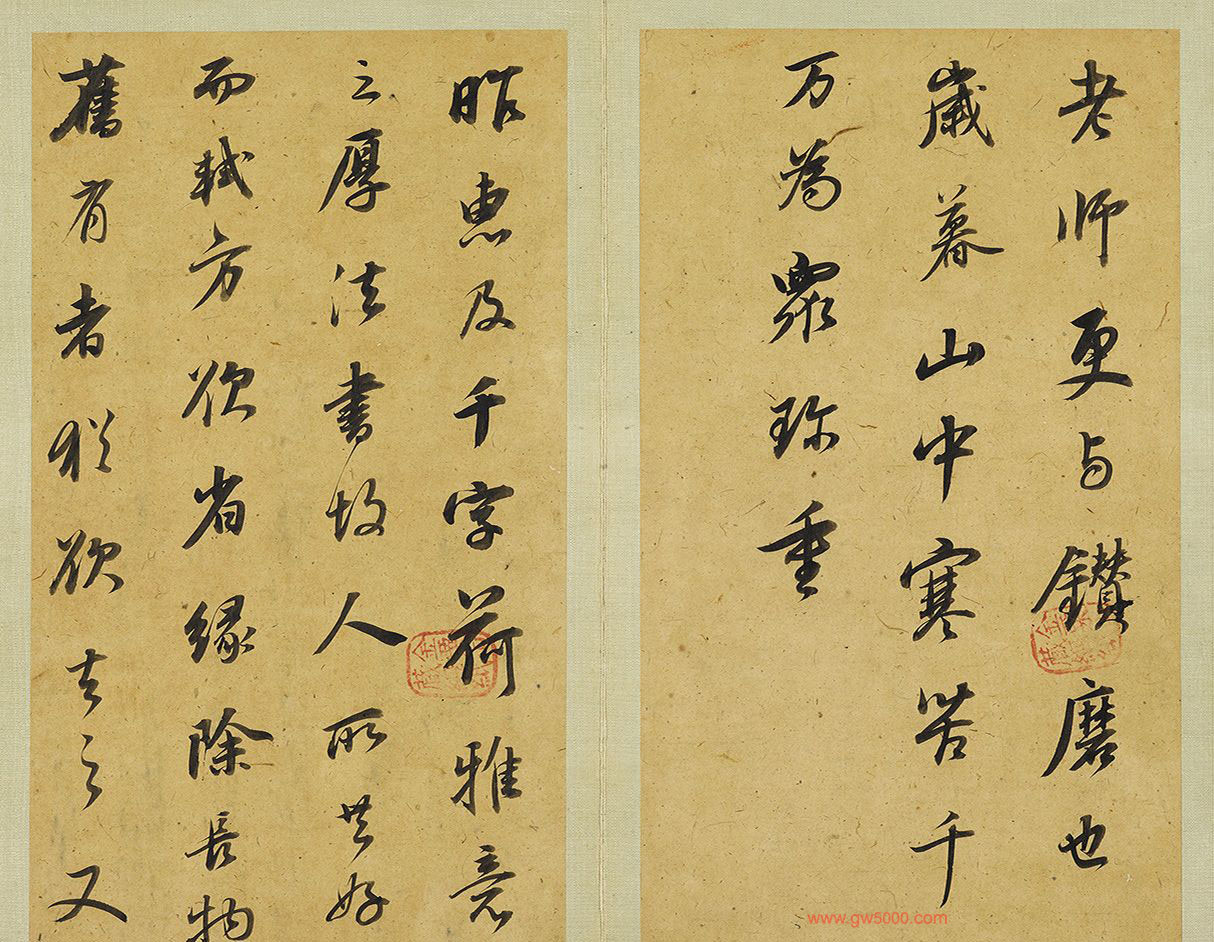 老师更与鑚磨也
嵗暮山中寒苦千
万为眾珎重
昨惠及千字荷雅意
之厚法書故人所共好
而軾方欲省緣除長物
舊有者猶欲去之又
www.gw5000.com